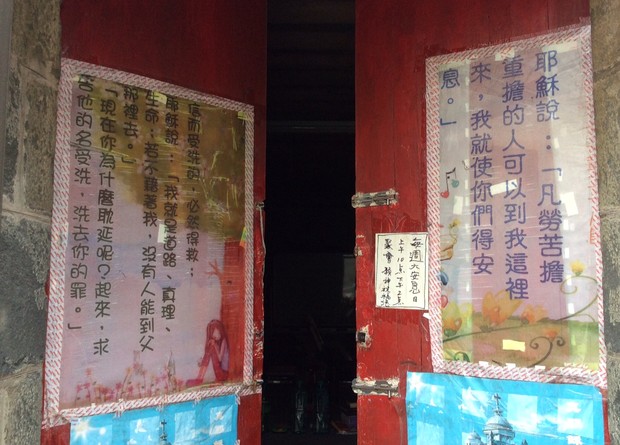 耶穌說：「凡勞苦擔
重擔的人可以到我這裡
來，我就使你們得安
息。」
每週六安息日
上午10点下午2点
聚會
信而受洗的，必然得救；
耶穌說：「我就是道路、真理、
生命；若不藉著我，沒有人能到父
那裡去。」
「現在你為什麼耽延呢？起來，求
告他的名受洗，洗去你的罪。」